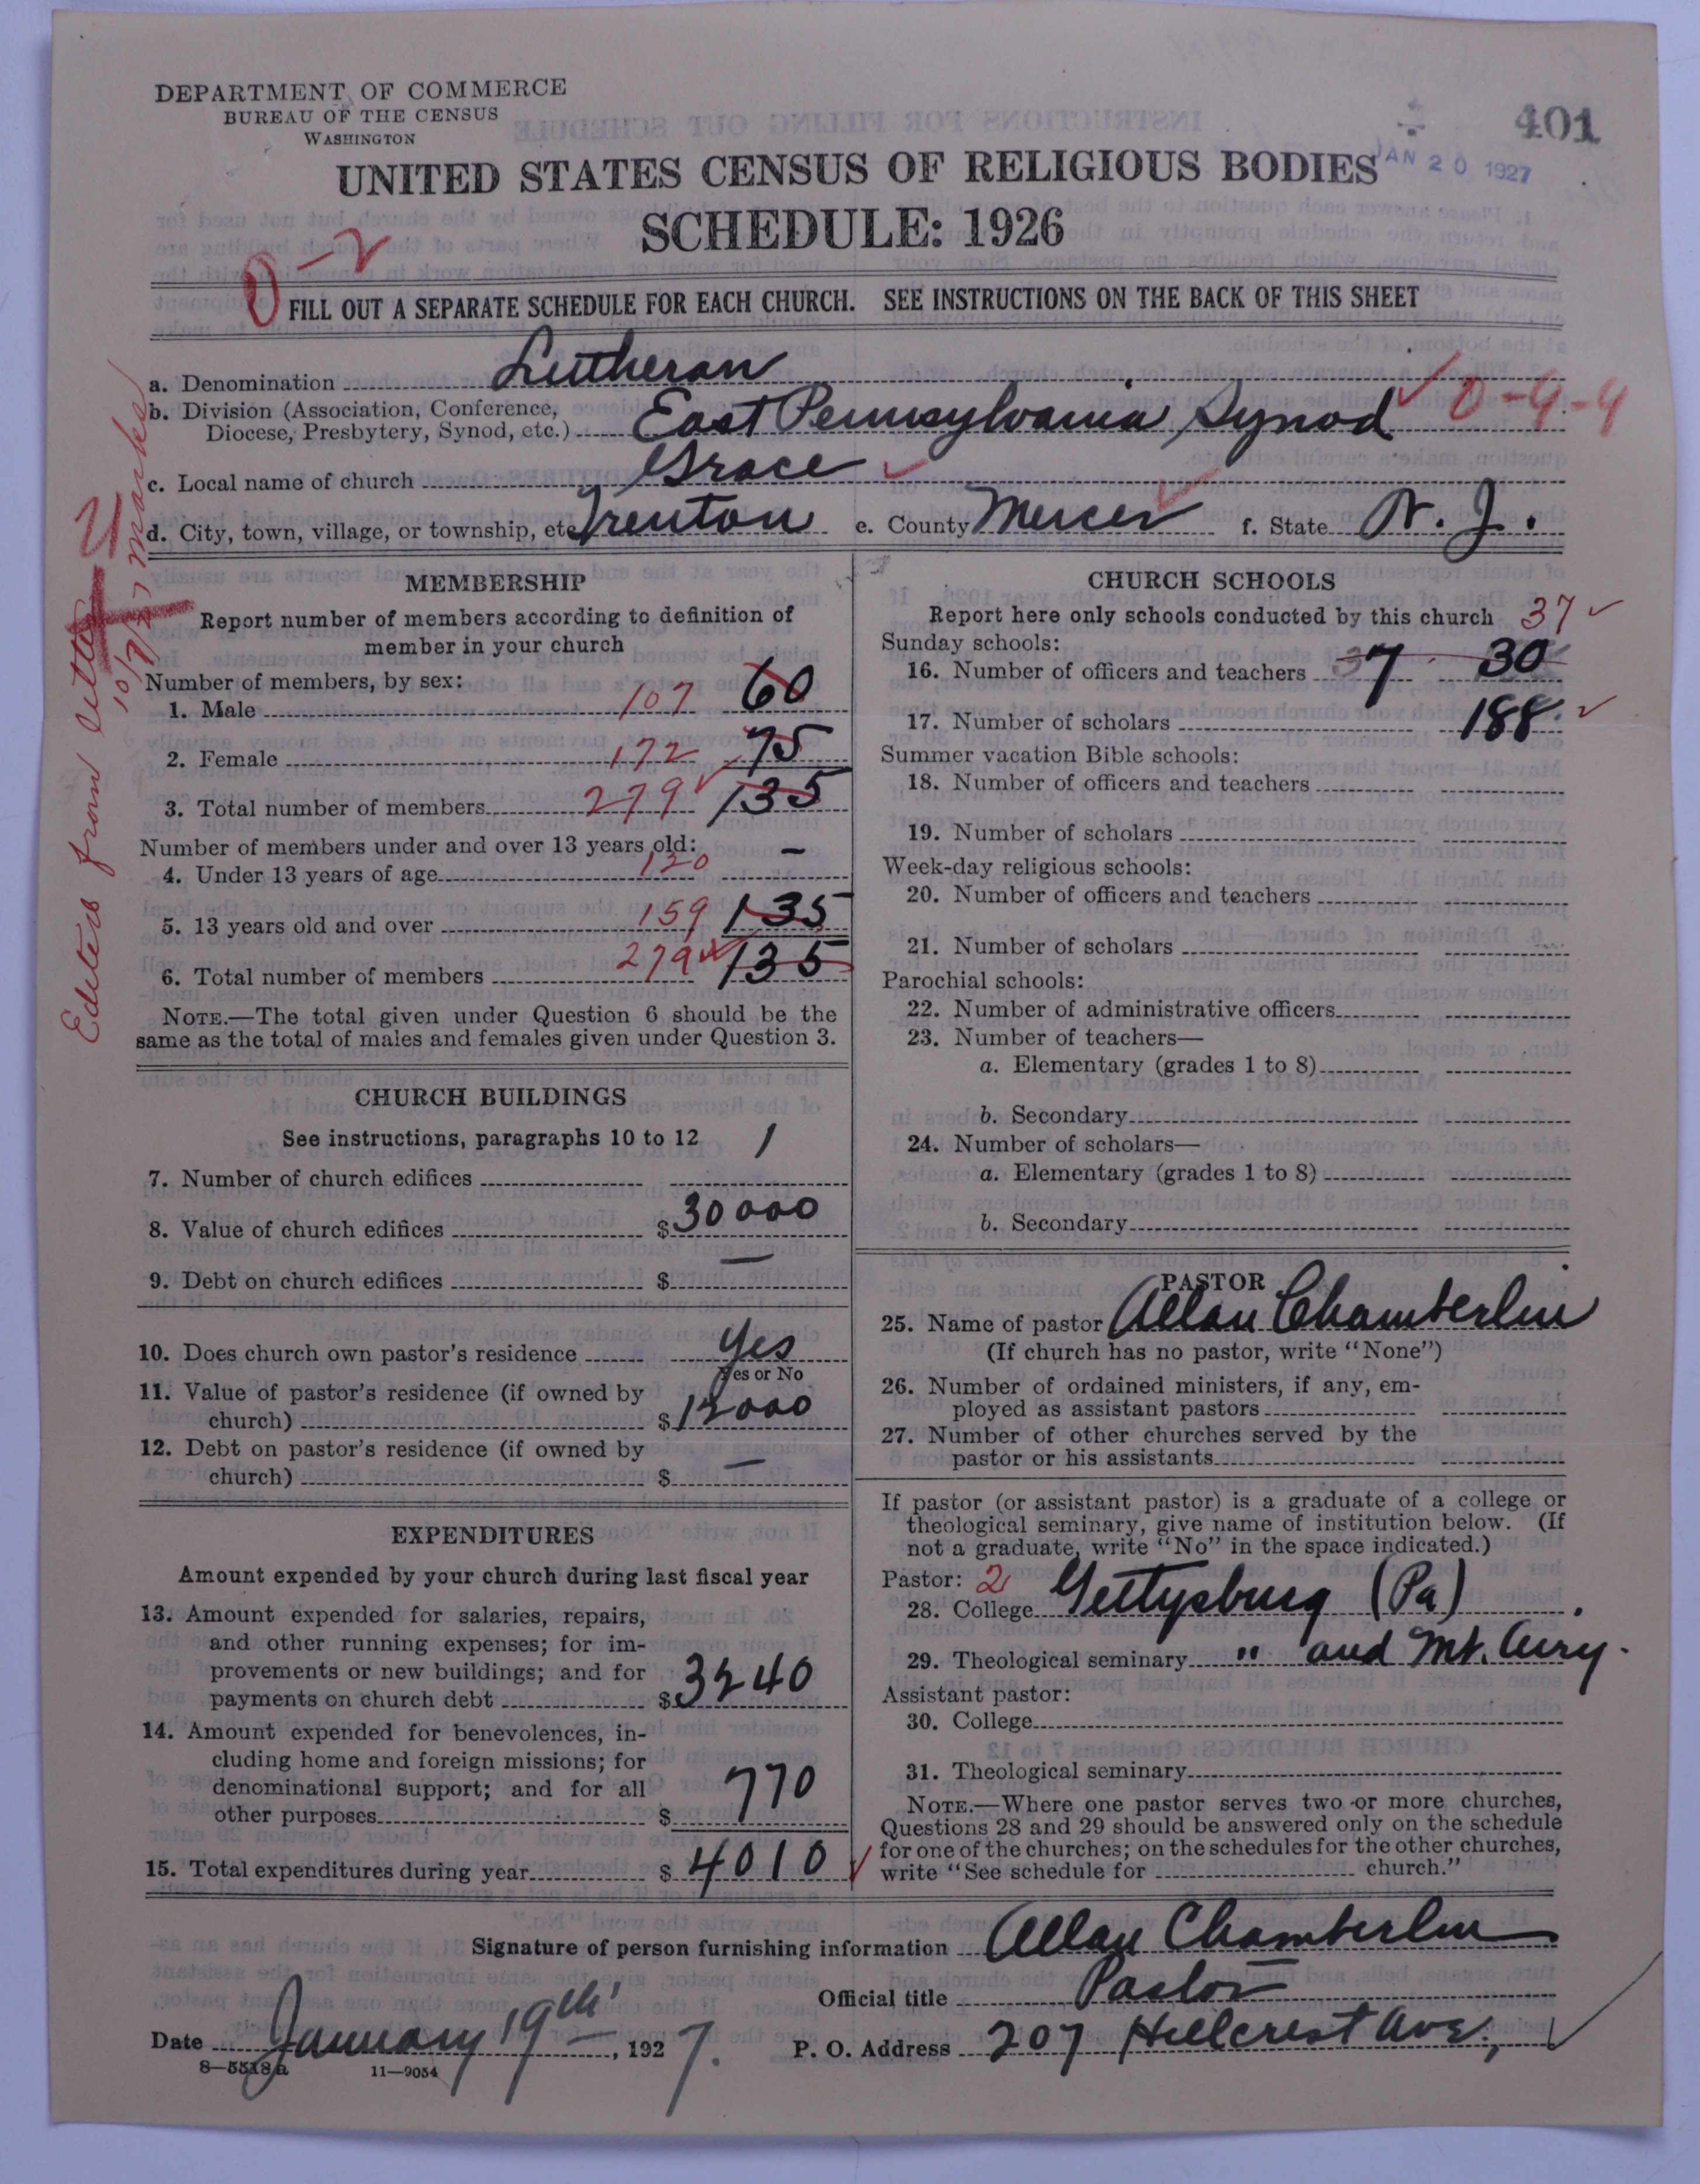 DEPARTMENT OF COMMERCE
BUREAU OF THE CENSUS
WASHINGTON
401
JAN 20 1927
UNITED STATES CENSUS OF RELIGIOUS BODIES
SCHEDULE: 1926
0-2
FILL OUT A SEPARATE SCHEDULE FOR EACH CHURCH. SEE INSTRUCTIONS ON THE BACK OF THIS SHEET
a. Denomination Lutheran
b. Division (Association, Conference, Diocese, Presbytery, Synod, etc.) East Pennsylvania Synod 0-4-4
c. Local name of church Grace
d. City, town, village, or township, etc Trenton e. County Mercer f. State N. J.
Edited from letter 10/7/27 marks
MEMBERSHIP
Report number of members according to definition of
member in your church
Number of members, by sex:
1. Male 107 60
2. Female 172 75
3. Total number of members 279 135
Number of members under and over 13 years old:
4. Under 13 years of age 120 –
5. 13 years old and over 159 135
6. Total number of members 279 135
NOTE.—The total given under Question 6 should be the
same as the total of males and females given under Question 3.
CHURCH BUILDINGS
See instructions, paragraphs 10 to 12
7. Number of church edifices 1
8. Value of church edifices $ 30000
9. Debt on church edifices $ —
10. Does church own pastor's residence Yes
Yes or No
11. Value of pastor's residence (if owned by
church) $ 12000
12. Debt on pastor's residence (if owned by
church) $ —
EXPENDITURES
Amount expended by your church during last fiscal year
13. Amount expended for salaries, repairs,
and other running expenses; for im-
provements or new buildings; and for
payments on church debt $ 3240
14. Amount expended for benevolences, in-
cluding home and foreign missions; for
denominational support; and for all
other purposes $ 770
15. Total expenditures during year $ 4010
CHURCH SCHOOLS
Report here only schools conducted by this church 37
Sunday schools:
16. Number of officers and teachers 37 30
17. Number of scholars 188
Summer vacation Bible schools:
18. Number of officers and teachers
19. Number of scholars
Week-day religious schools:
20. Number of officers and teachers
21. Number of scholars
Parochial schools:
22. Number of administrative officers
23. Number of teachers—
a. Elementary (grades 1 to 8)
b. Secondary
24. Number of scholars—
a. Elementary (grades 1 to 8)
b. Secondary
PASTOR
25. Name of pastor Allan Chamberlin
(If church has no pastor, write "None")
26. Number of ordained ministers, if any, em-
ployed as assistant pastors
27. Number of other churches served by the
pastor or his assistants
If pastor (or assistant pastor) is a graduate of a college or
theological seminary, give name of institution below. (If
not a graduate, write "No" in the space indicated.)
Pastor: 2
28. College Gettysburg (Pa)
29. Theological seminary " and Mt. Airy.
Assistant pastor:
30. College
31. Theological seminary
NOTE.—Where one pastor serves two or more churches,
Questions 28 and 29 should be answered only on the schedule
for one of the churches; on the schedules for the other churches,
write "See schedule for church."
Signature of person furnishing information Allan Chamberlin
Official title Pastor
Date January 19th, 1927. P. O. Address 207 Hillcrest Ave,
8—5518a 11—9054